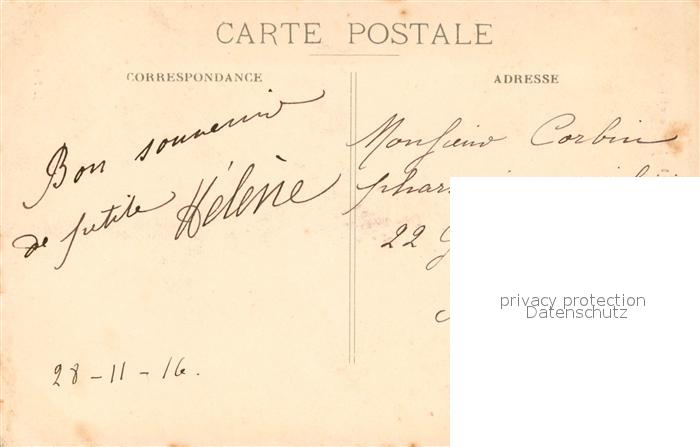 CARTE POSTALE
CORRESPONDANCE
Bon souvenir
de petite Hélène
28-11-16.
ADRESSE
Monsieur Corbin
22
privacy protection
Datenschutz